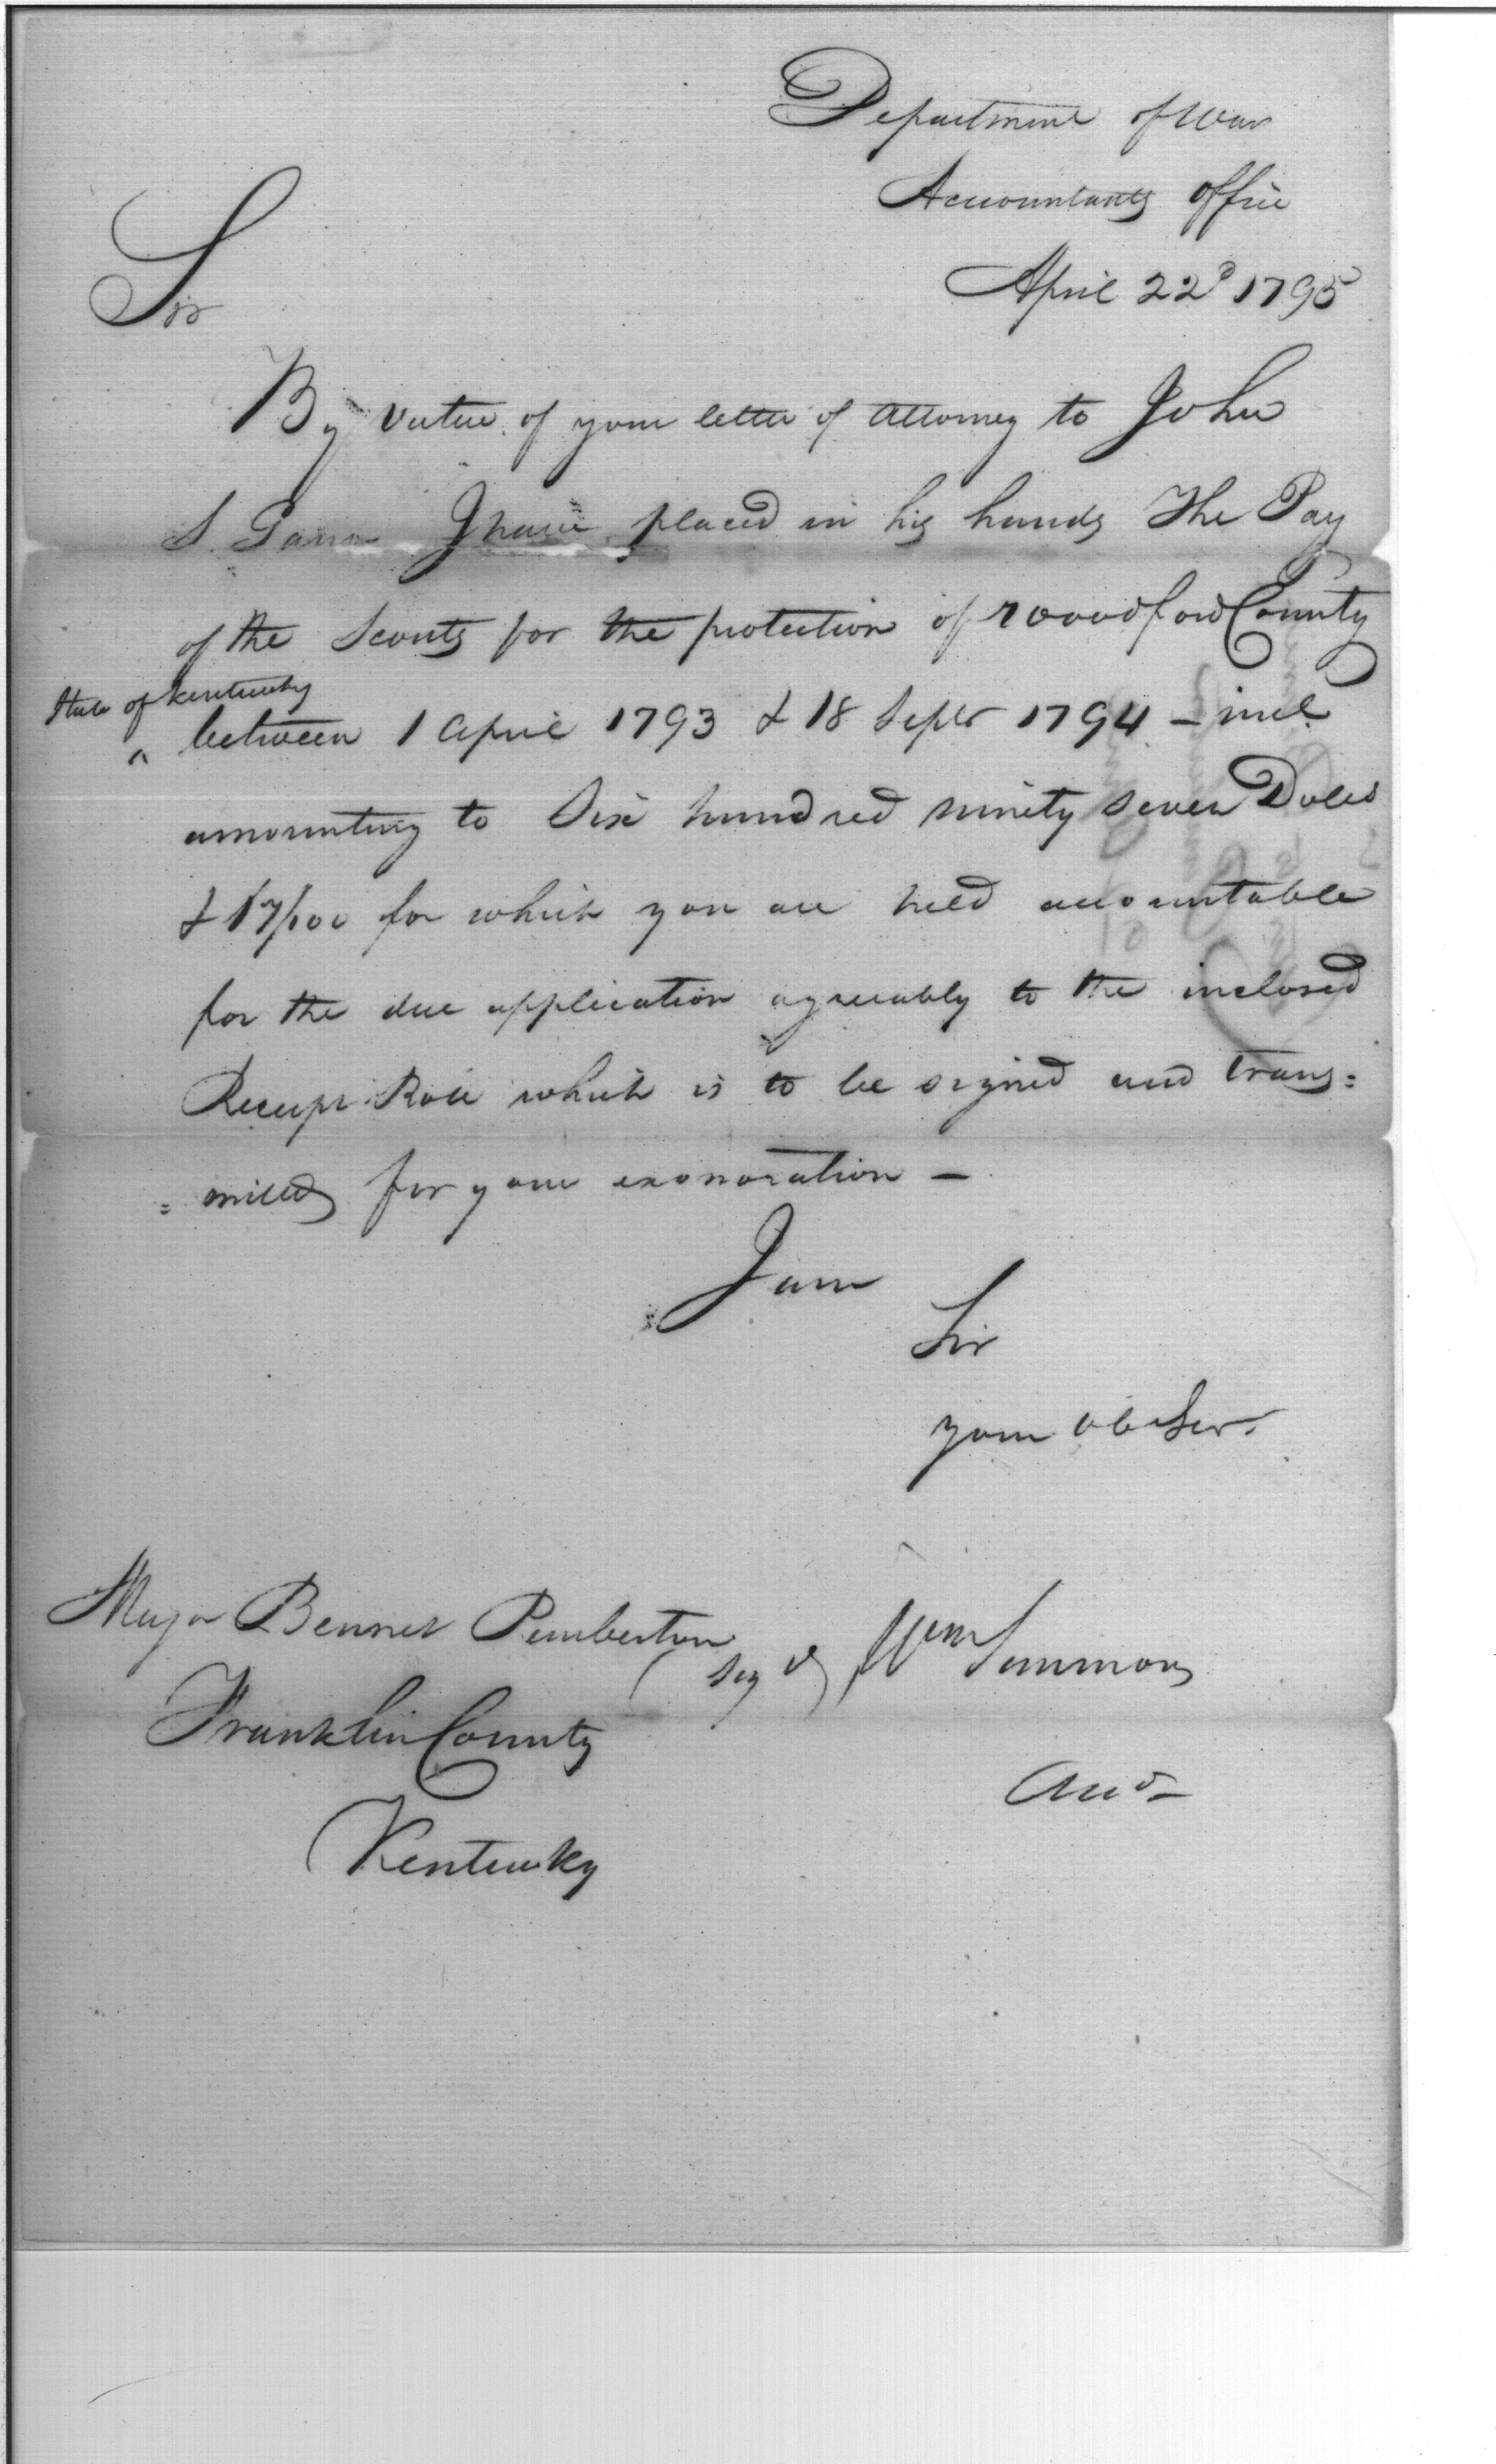 Department of War
Accountants office
April 22d 1795
Sir
By virtue of your letter of attorney to John
S. Gano I have placed in his hands The Pay
of the Scouts for the protection of Woodford County
State of Kentucky
^ between 1 April 1793 & 18 Septr 1794 - incl
amounting to Six hundred ninety seven Dolls
& 17/100 for which you are held accountable
for the due application agreeably to the inclosed
Receipt Roll which is to be signed and trans=
=mitted for your exonoration -
I am
Sir
your ob Ser.
Major Bennet Pemberton
(Sigd) Wm Simmons
Franklin County
Acct
Kentucky